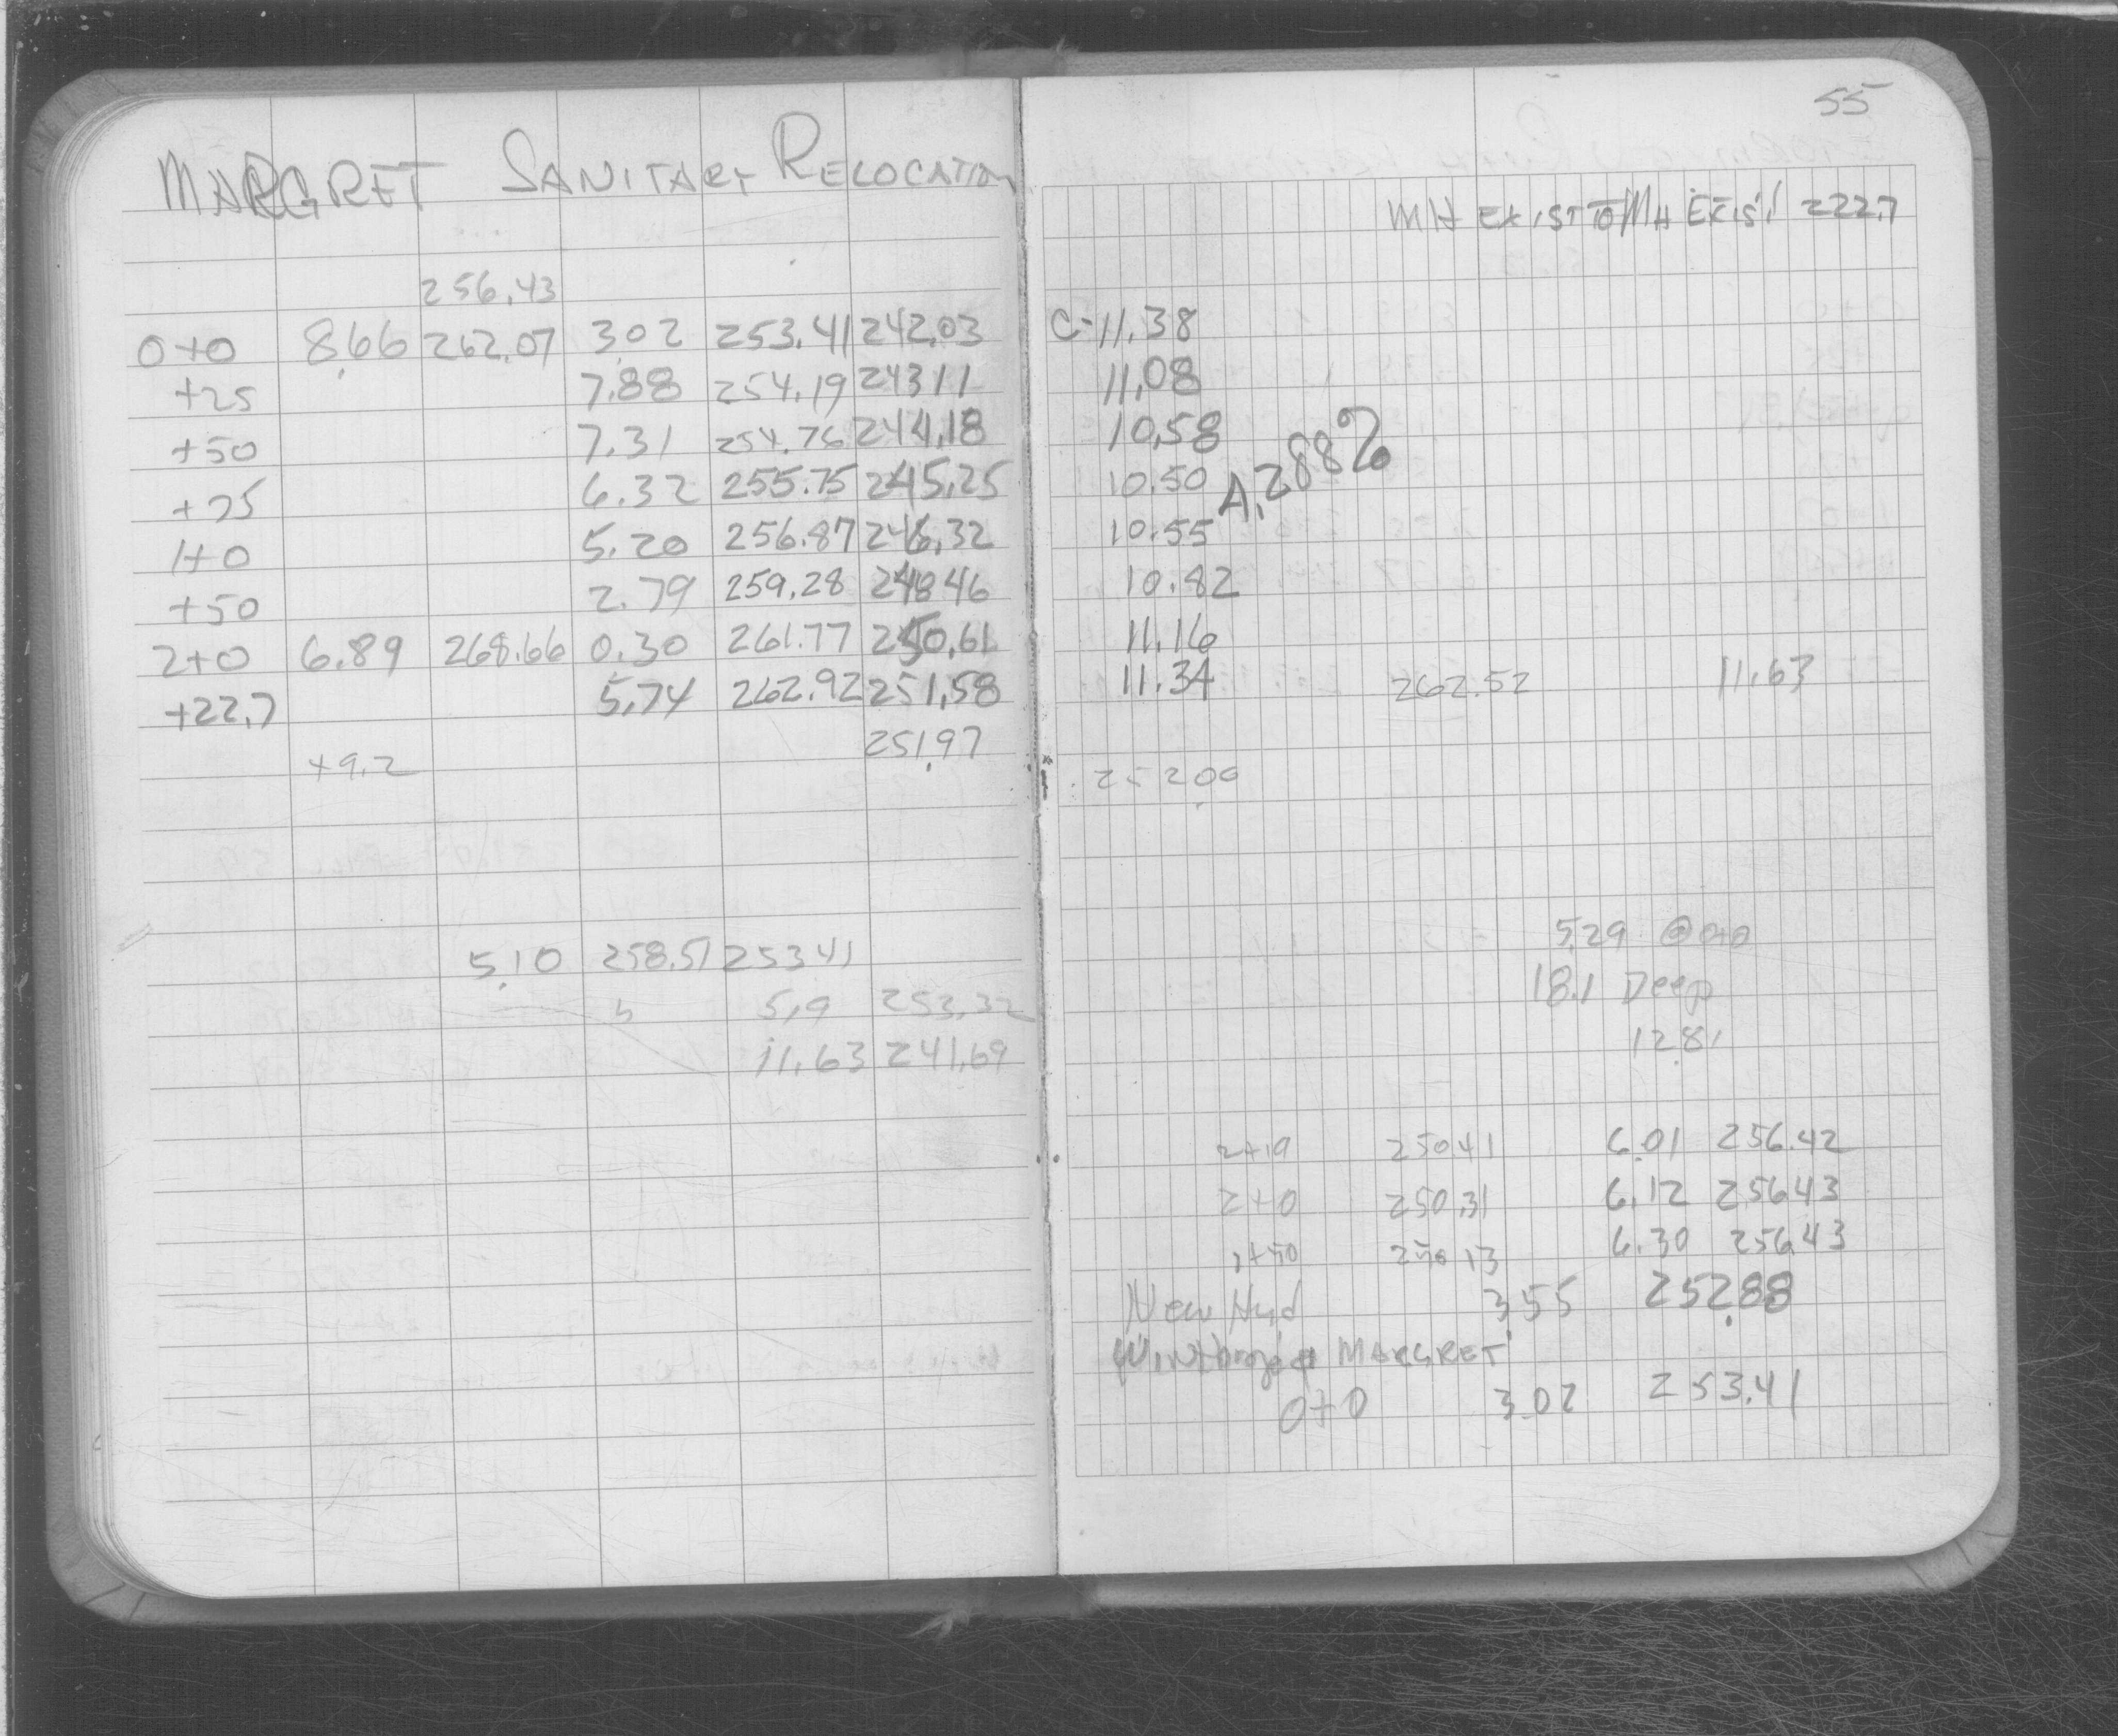 55
MARGRET SANITARY RELOCATION
MH EXIST TO MH EXIST 222.7
256.43
0+0 8.66 262.07 3.02 253.41 242.03 C-11.38
+25 7.88 254.19 243.11 11.08
+50 7.31 254.76 244.18 10.58
+75 6.32 255.75 245.25 10.50 A, 2.88%
1+0 5.20 256.87 246.32 10.55
+50 2.79 259.28 248.46 10.82
2+0 6.89 268.66 0.30 261.77 250.61 11.16
+22.7 5.74 262.92 251.58 11.34 262.52 11.63
251.97
+9.2 252.00
5.29 @ 0+0
5.10 258.51 253.41
18.1 Deep
5.9 253.32
12.81
11.63 241.69
2+19 250.41 6.01 256.42
2+0 250.31 6.12 256.43
1+50 250.13 6.30 256.43
New Hyd 3.55 252.88
MARGRET
0+0 3.02 253.41